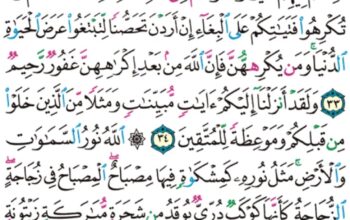 تُكْرِهُوا۟ فَتَيَـٰتِكُمْ عَلَى ٱلْبِغَآءِ إِنْ أَرَدْنَ تَحَصُّنًا لِّتَبْتَغُوا۟ عَرَضَ ٱلْحَيَوٰةِ
ٱلدُّنْيَا ۚ وَمَن يُكْرِههُّنَّ فَإِنَّ ٱللَّهَ مِنۢ بَعْدِ إِكْرَٰهِهِنَّ غَفُورٌ رَّحِيمٌ
٣٣ وَلَقَدْ أَنزَلْنَآ إِلَيْكُمْ ءَايَـٰتٍ مُّبَيِّنَـٰتٍ وَمَثَلًا مِّنَ ٱلَّذِينَ خَلَوْا۟
مِن قَبْلِكُمْ وَمَوْعِظَةً لِّلْمُتَّقِينَ ٣٤ ۞ ٱللَّهُ نُورُ ٱلسَّمَـٰوَٰتِ
وَٱلْأَرْضِ ۚ مَثَلُ نُورِهِۦ كَمِشْكَوٰةٍ فِيهَا مِصْبَاحٌ ۖ ٱلْمِصْبَاحُ فِى زُجَاجَةٍ ۖ
ٱلزُّجَاجَةُ كَأَنَّهَا كَوْكَبٌ دُرِّىٌّ يُوقَدُ مِن شَجَرَةٍ مُّبَـٰرَكَةٍ زَيْتُونَةٍ